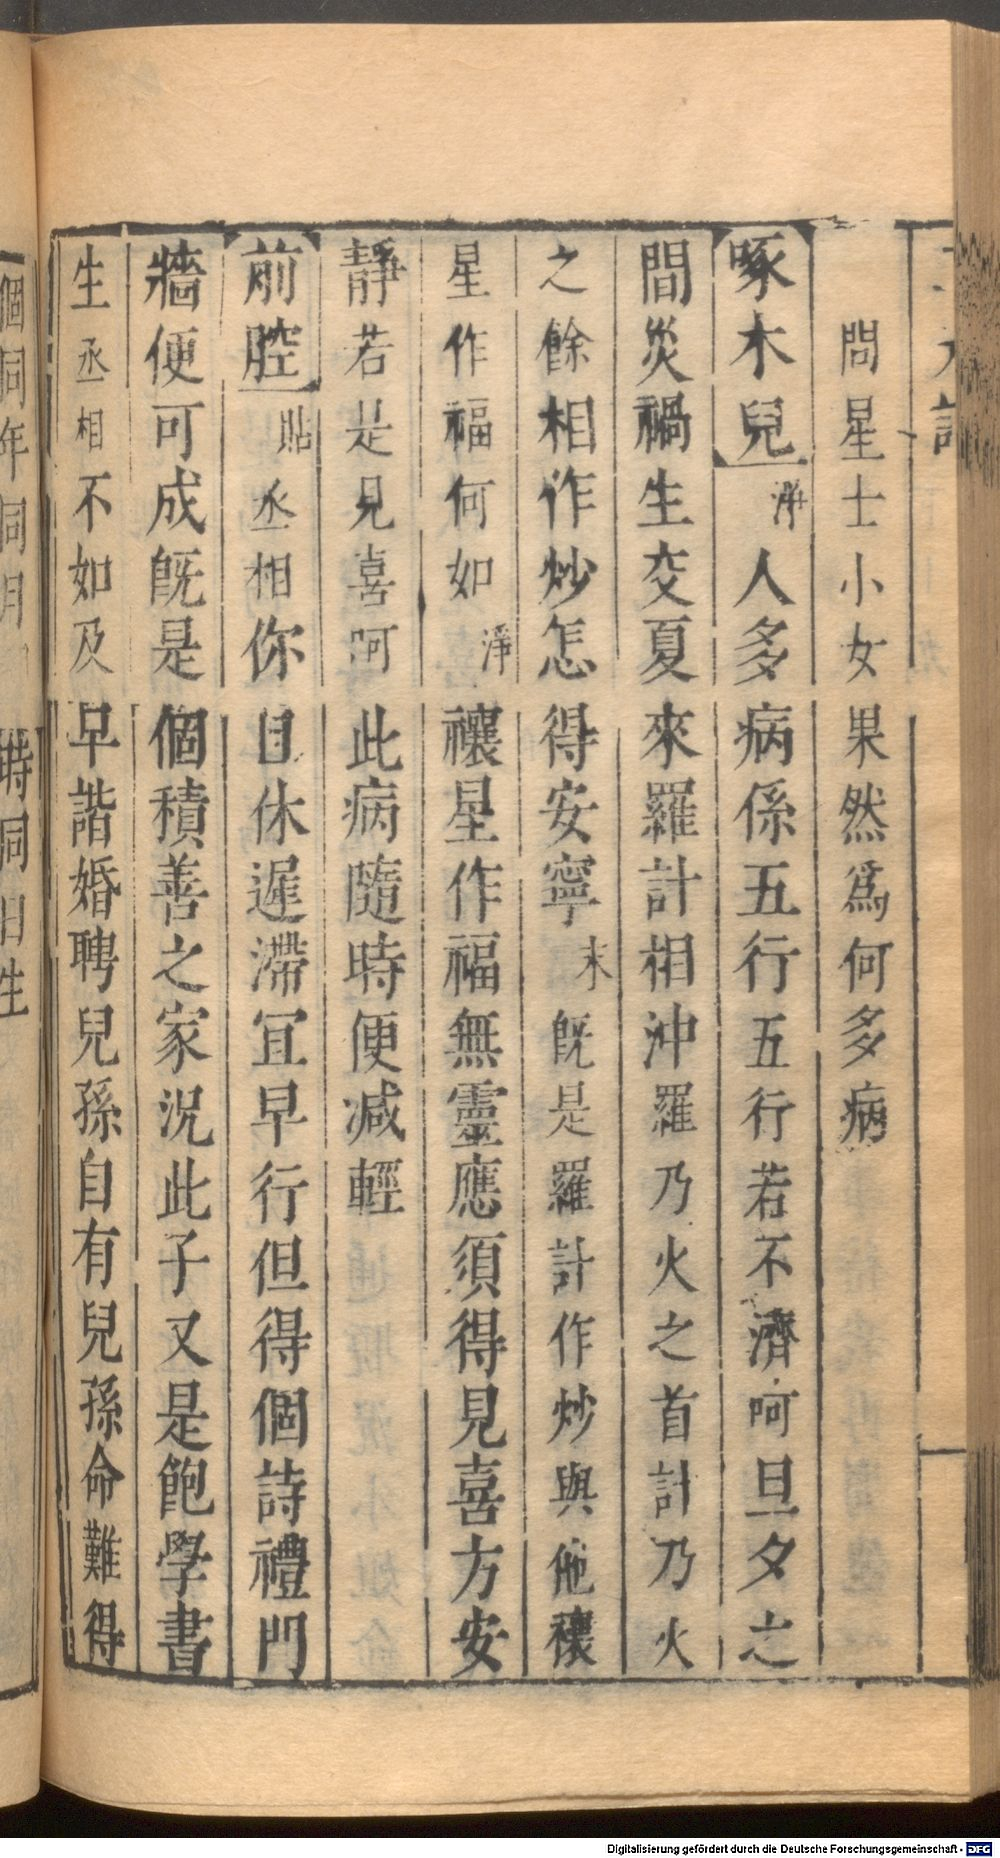 問星士小女果然爲何多病
啄木兒淨人多病係五行五行若不濟呵旦夕之
間災禍生交夏來羅計相沖羅乃火之首計乃火
之餘相作炒怎得安寧末既是羅計作炒與他禳
星作福何如淨禳星作福無靈應須得見喜方安
靜若是見喜呵此病隨時便减輕
前腔貼丞相你且休遲滯宜早行但得個詩禮門
牆便可成旣是個積善之家況此子又是飽學書
生丞相不如及早諧婚聘兒孫自有兒孫命難得
個同年同月時同日生
Digitalisierung gefördert durch die Deutsche Forschungsgemeinschaft - DFG